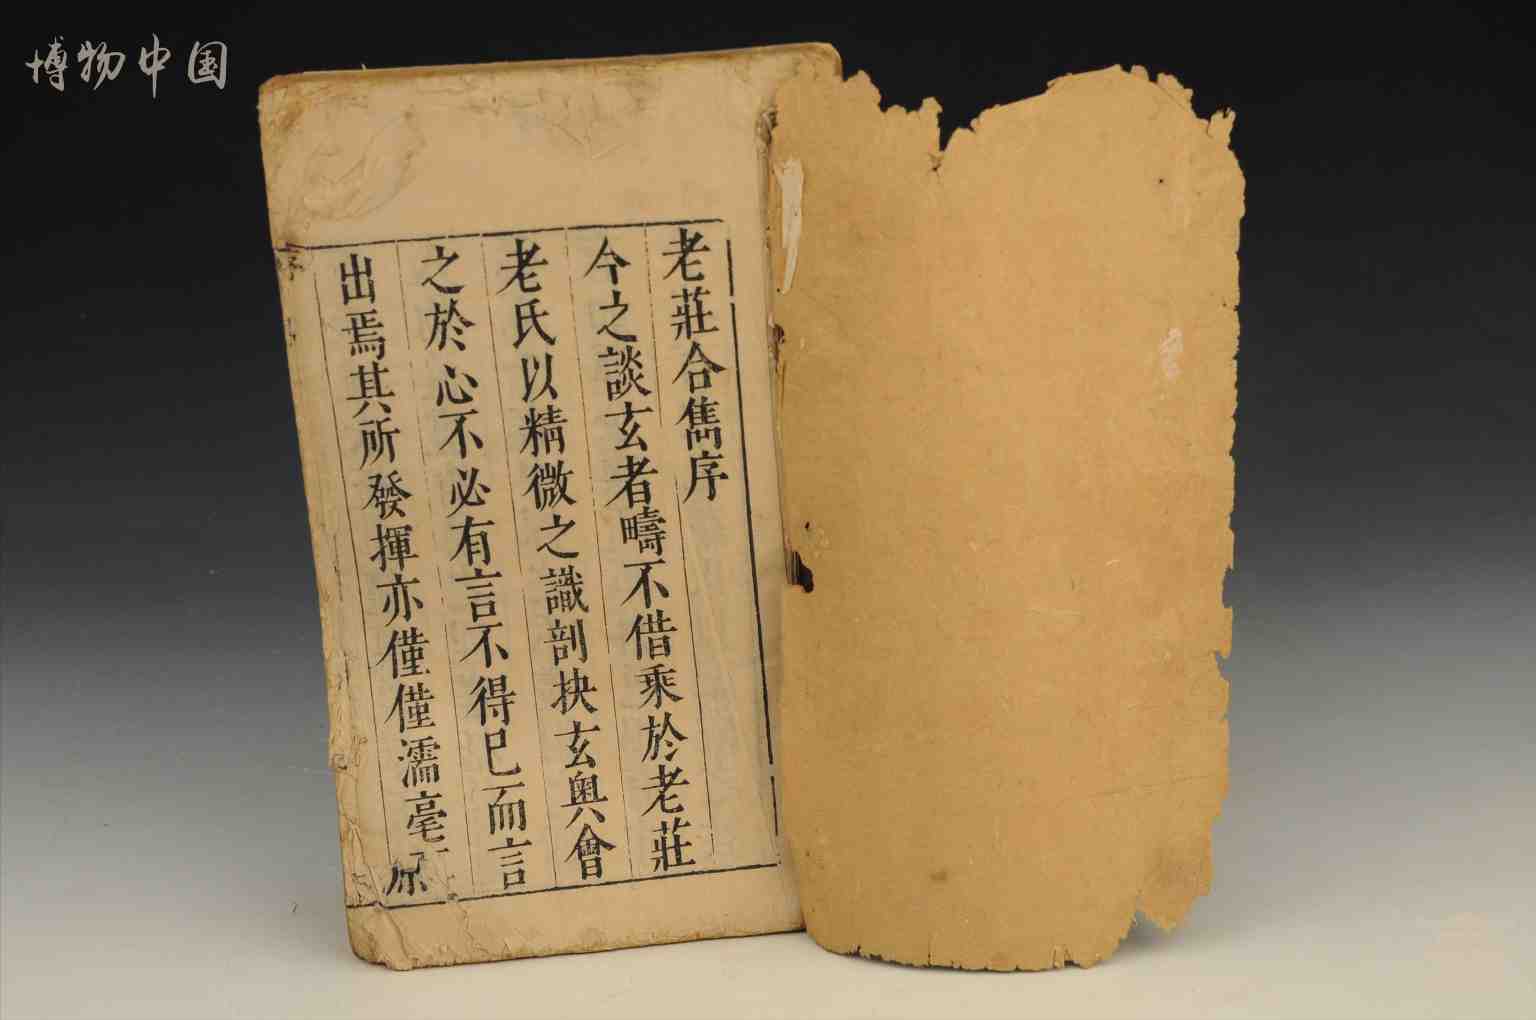 博物中国
老莊合雋序
今之談玄者疇不借乘於老莊
老氏以精微之識剖抉玄奧會
之於心不必有言不得已而言
出焉其所發揮亦僅僅濡毫原
序